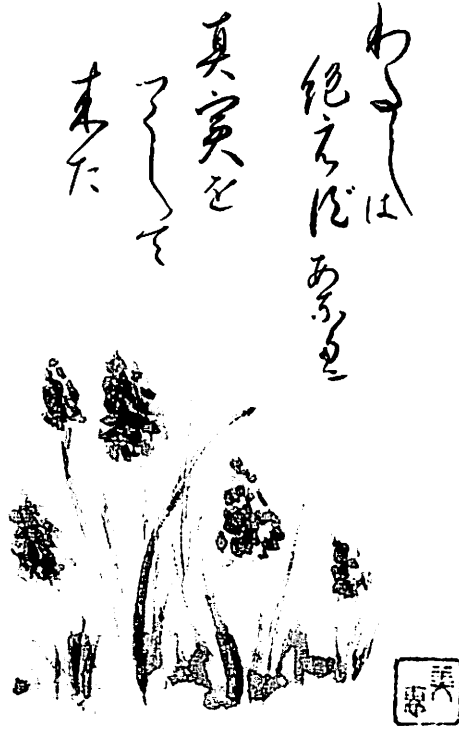 わたしは
絶えずあなたに
真実を
つくして
来た